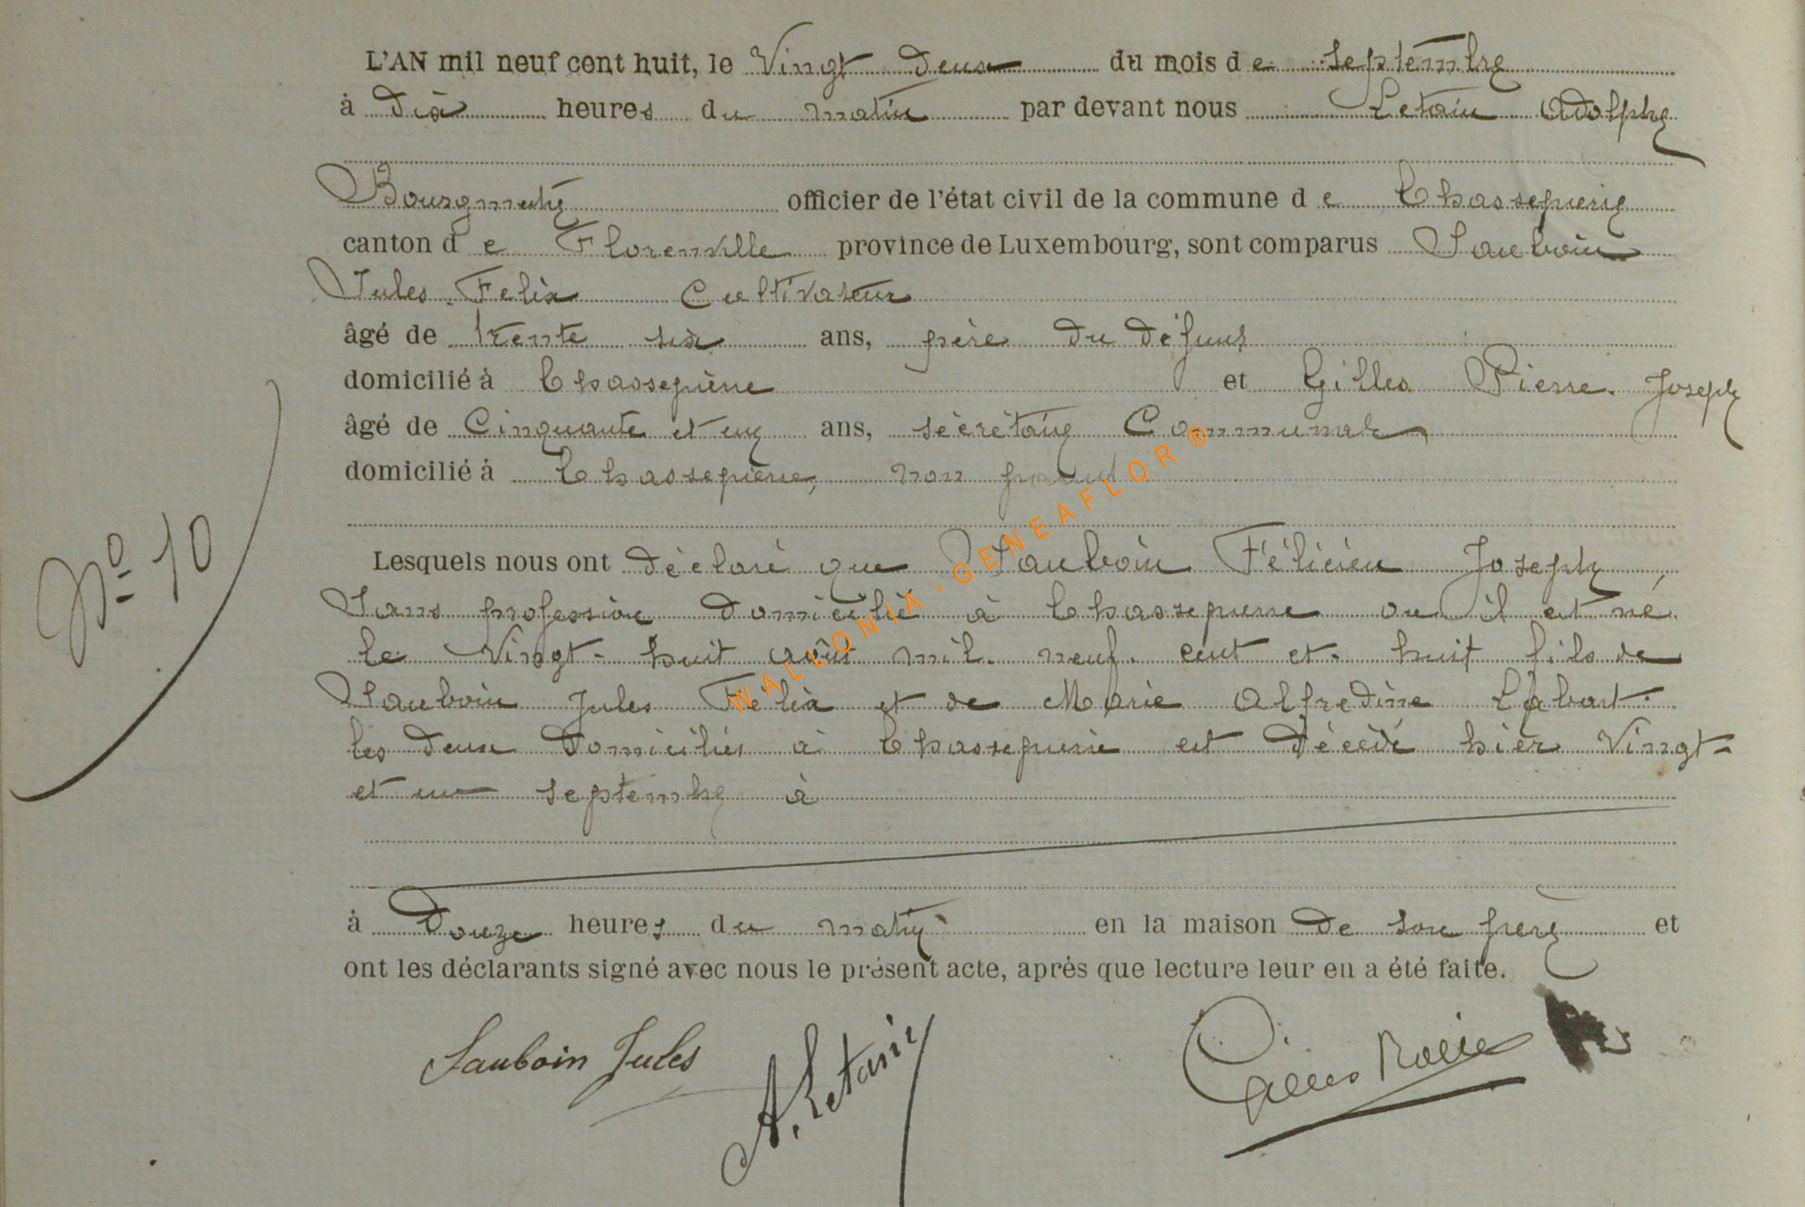 L'AN mil neuf cent huit, le Vingt deux du mois de septembre
à dix heures du matin par devant nous Letain Adolphe
Bourgmestre officier de l'état civil de la commune de Chassepierre
canton de Florenville province de Luxembourg, sont comparus Sauboin
Jules Felix Cultivateur
âgé de trente six ans, père du défunt
domicilié à Chassepierre et Gilles Pierre Joseph
âgé de Cinquante et un ans, sécrétaire Communal
domicilié à Chassepierre, non parent
Nº 10
Lesquels nous ont déclaré que Sauboin Félicien Joseph,
Sans profession domicilié à Chassepierre ou il est né
le Vingt-huit août mil neuf cent et huit fils de
Sauboin Jules Félix et de Marie Alfredine Labart
les deux domiciliés à Chassepierre est décédé hier Vingt-
et un septembre à
à Douze heures du matin en la maison de son père et
ont les déclarants signé avec nous le présent acte, après que lecture leur en a été faite.
Sauboin Jules
A. Letain
Gilles
WALLONIA-GENEAFLOR®